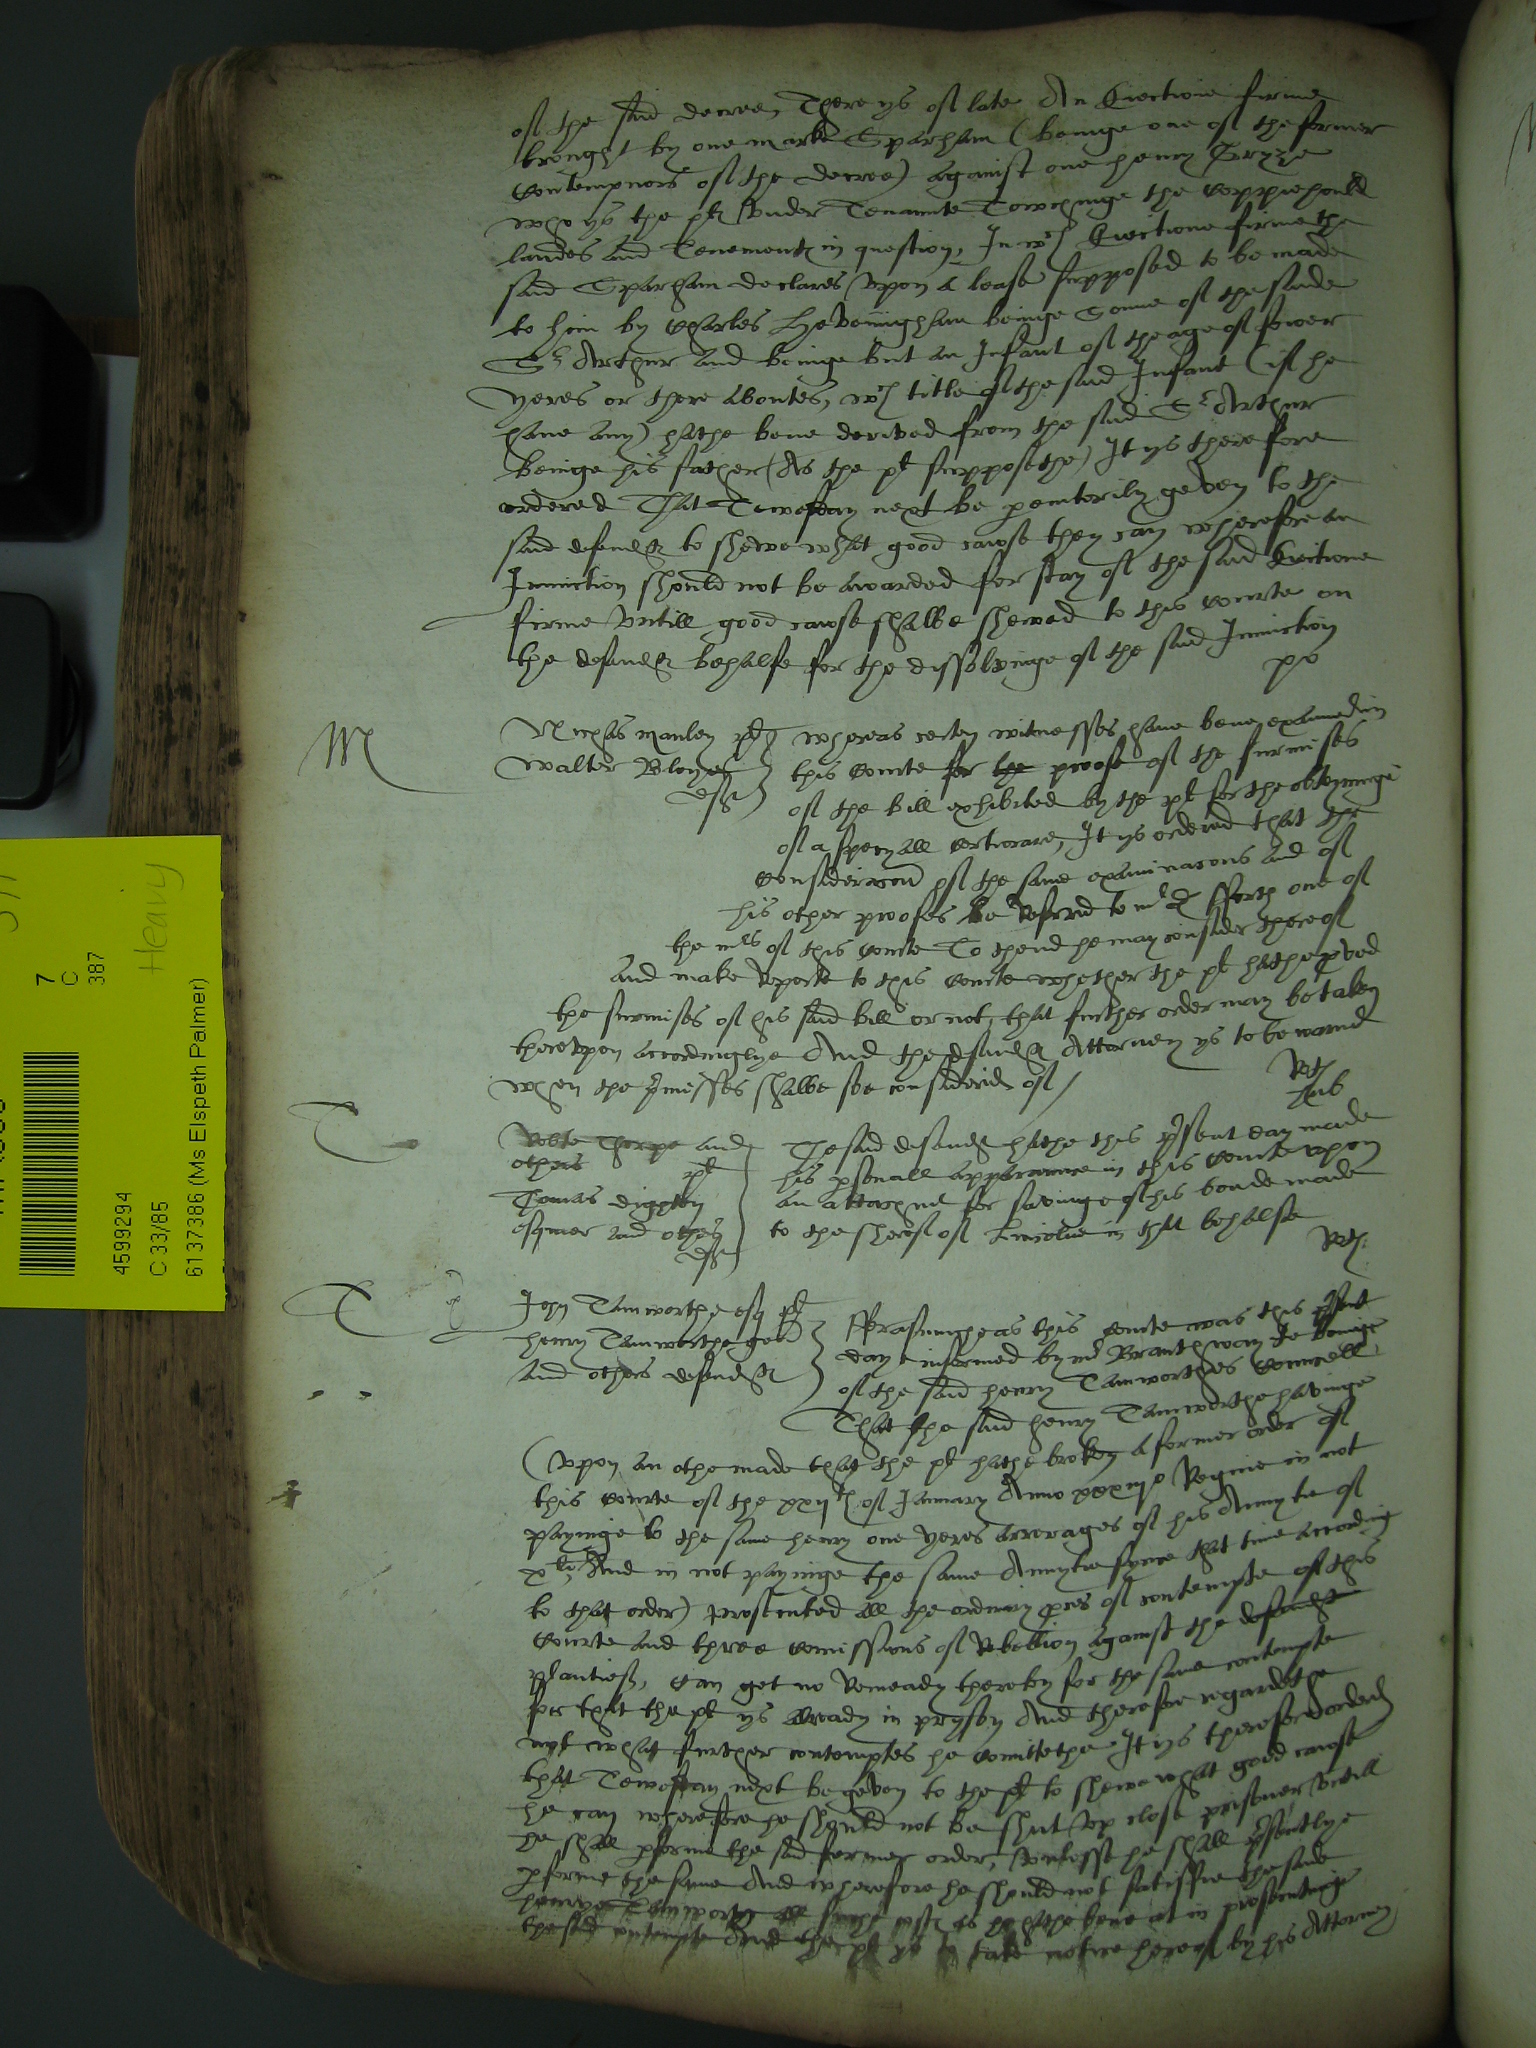 of the said decree, There ys of late An Eiectione firme
brought by one marke Sparham (beinge one of the former
contempnors of the decree) against one henry
who ys the plt under Tenannte Towchinge the coppiehould
landes and Tenementes in question, In wch Eiectione firme the
said Sparham declares upon a lease supposed to be made
to him by Charles Heveningham beinge Sonne of the saide
Sr Arthur and beinge but an Infant of the age of fower
yeres or there aboutes, wch title of the said Infant (if he
have any) hathe bene derived from the said Sr Arthur
beinge his father (As the plt supposethe) It ys therefore
ordered That Tewesday next be peremtorily geven to the
said defendtes to shewe what good cawse they can wherefore an
Iniunction should not be awarded for stay of the said Eiectione
firme untill good cawse shalbe shewed to this courte on
the defendtes behalfe for the dissolvinge of the said Iniunction
M
Nichas manley plt
Walter
deftes
whereas certen witnesses have bene examined in
this courte for the proofe of the surmises
of the bill exhibited by the plt for the obteyninge
of a specyall certiorare, It ys ordered that the
consideracon of the same examinacons and of
his other proofes be referrd to mr D fforth one of
the mrs of this courte To thend he may consider thereof
and make reporte to this courte whether the plt hathe pved
the surmises of his said bill or not, that further order may be taken
thereupon accordinglye And the defendtes Attorney ys to be warnd
when the pmisses shalbe soe considerid of /
T
Robte Thorpe and
others plt
Tomas
esquier and others
deftes
The said defendt hathe this psent day made
his psonall apparannce in this courte upon
an attachmt for savinge of his bonde made
to the sheref of Lincolne in that behalfe
T
John Tamworthe esq plt
henry Tamworthe gent
and others defendtes
fforasmuche as this courte was this psent
daye informed by mr Branthwayte beinge
of the said henry Tamworthes councell,
That the said henry Tamworthe havinge
(upon an othe made that the plt hathe broken a former order of
this courte of the xxijth of January Anno Regine in not
payinge to the same henry one yeres arrerages of his Annytie of
xli, And in not payinge the same Annytie synce that time according
to that order) prosecuted all the ordinary pces of contempte of this
courte and three comissions of Rebellion against the defendt
plantief, can get no remeady thereby for the same contempte
for that the plt ys already in pryson And therefor regardethe
not what further contemptes he comittethe It ys therefore ordered
that Tewesday next be geven to the plt to shewe what good cawse
he can wherefore he should not be shut up close prisoner untill
he shall pforme the said former order, unlesse he shall psentlye
pforme the same And wherefore he should not satisfie the saide
henrye Tamworth all such costes as he hathe bene at in prosecutinge
the said contempte And the plt ys to take notice hereof by his Attorney
7
C
387
Heavy
4599294
C 33/85
6137386 (Ms Elspeth Palmer)